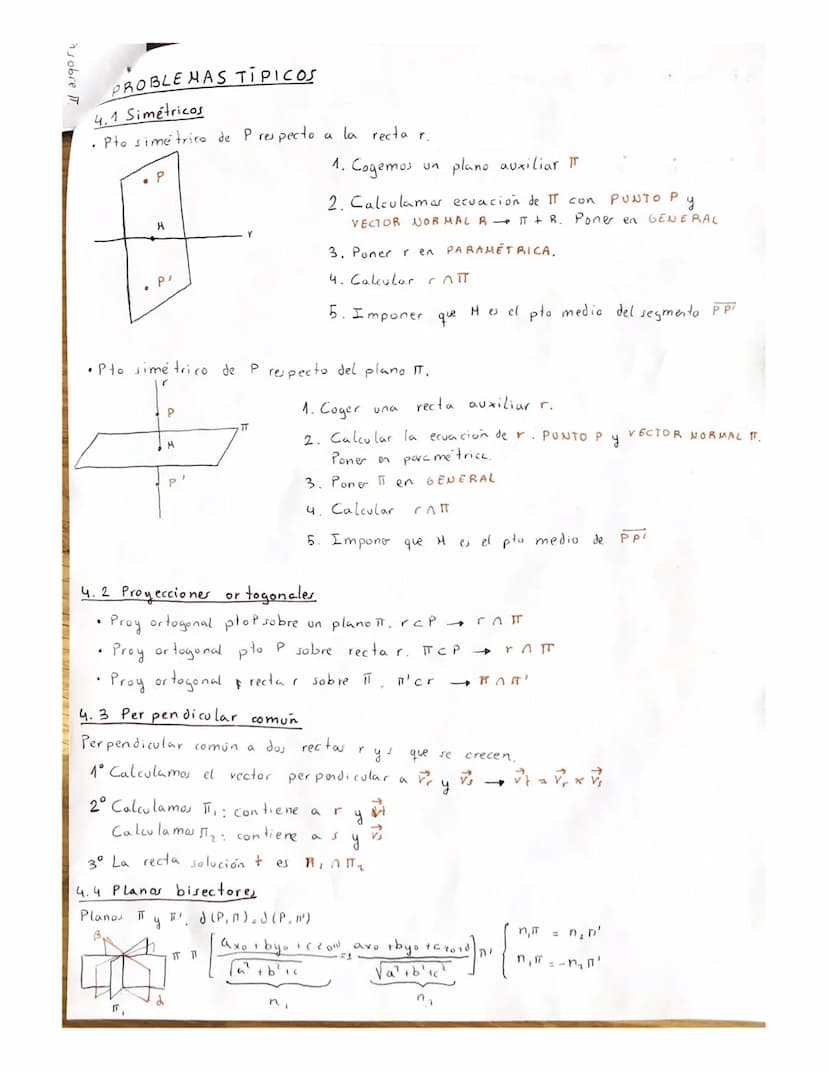 sobre π
PROBLEMAS TÍPICOS
4.1 Simétricos
• Pto simétrico de P respecto a la recta r.
P
M
r
P'
1. Cogemos un plano auxiliar π
2. Calculamos ecuación de π con PUNTO P y
VECTOR NORMAL R → π + R. Poner en GENERAL
3. Poner r en PARAMÉTRICA.
4. Calcular r ∩ π
5. Imponer que M es el pto medio del segmento PP'
• Pto simétrico de P respecto del plano π.
r
P
π
M
P'
1. Coger una recta auxiliar r.
2. Calcular la ecuación de r. PUNTO P y VECTOR NORMAL π.
Poner en paramétrica.
3. Poner π en GENERAL
4. Calcular r ∩ π
5. Imponer que M es el pto medio de PP'
4.2 Proyecciones ortogonales
• Proy ortogonal pto P sobre un plano π. r ⊂ P → r ∩ π
• Proy ortogonal pto P sobre recta r. π ⊂ P → r ∩ π
• Proy ortogonal recta r sobre π, π' ⊂ r → π ∩ π'
4.3 Perpendicular común
Perpendicular común a dos rectas r y s que se crecen.
1º Calculamos el vector perpendicular a v⃗r y v⃗s → v⃗t = v⃗r × v⃗s
2º Calculamos π₁: contiene a r y v⃗t
Calculamos π₂: contiene a s y v⃗s
3º La recta solución t es π₁ ∩ π₂
4.4 Planos bisectores
Planos π y π'. d(P,π) = d(P,π')
β
π₁
α
n₁π = n₂π'
n₁π = -n₂π'
n₁
n₁